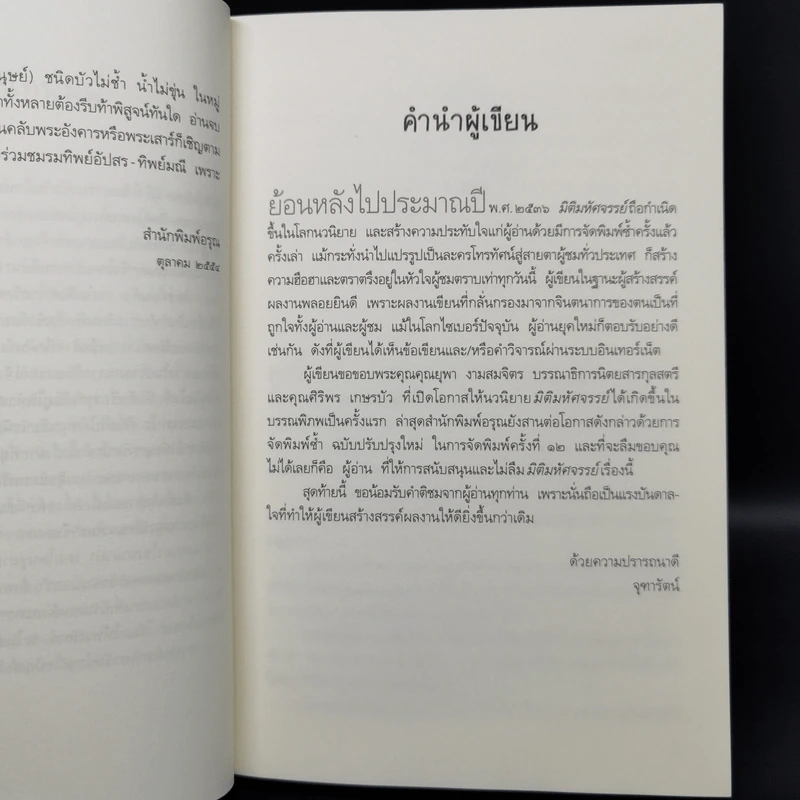 นุษย์) ชนิดบัวไม่ช้ำ น้ำไม่ขุ่น ในหมู่
าทั้งหลายต้องรีบท้าพิสูจน์ทันใด อ่านจบ
นคลับพระอังคารหรือพระเสาร์ก็เชิญตาม
ร่วมชมรมทิพย์อัปสร-ทิพย์มณี เพราะ
สำนักพิมพ์อรุณ
ตุลาคม ๒๕๕๔
คำนำผู้เขียน
ย้อนหลังไปประมาณปี พ.ศ. ๒๕๓๖ มิติมหัศจรรย์ถือกำเนิด
ขึ้นในโลกนวนิยาย และสร้างความประทับใจแก่ผู้อ่านด้วยมีการจัดพิมพ์ซ้ำครั้งแล้ว
ครั้งเล่า แม้กระทั่งนำไปแปรรูปเป็นละครโทรทัศน์สู่สายตาผู้ชมทั่วประเทศ ก็สร้าง
ความฮือฮาและตราตรึงอยู่ในหัวใจผู้ชมตราบเท่าทุกวันนี้ ผู้เขียนในฐานะผู้สร้างสรรค์
ผลงานพลอยยินดี เพราะผลงานเขียนที่กลั่นกรองมาจากจินตนาการของตนเป็นที่
ถูกใจทั้งผู้อ่านและผู้ชม แม้ในโลกไซเบอร์ปัจจุบัน ผู้อ่านยุคใหม่ก็ตอบรับอย่างดี
เช่นกัน ดังที่ผู้เขียนได้เห็นข้อเขียนและ/หรือคำวิจารณ์ผ่านระบบอินเทอร์เน็ต
ผู้เขียนขอขอบพระคุณคุณยุพา งามสมจิตร บรรณาธิการนิตยสารกุลสตรี
และคุณศิริพร เกษรบัว ที่เปิดโอกาสให้นวนิยาย มิติมหัศจรรย์ ได้เกิดขึ้นใน
บรรณพิภพเป็นครั้งแรก ล่าสุดสำนักพิมพ์อรุณยังสานต่อโอกาสดังกล่าวด้วยการ
จัดพิมพ์ซ้ำ ฉบับปรับปรุงใหม่ ในการจัดพิมพ์ครั้งที่ ๑๒ และที่จะลืมขอบคุณ
ไม่ได้เลยก็คือ ผู้อ่าน ที่ให้การสนับสนุนและไม่ลืม มิติมหัศจรรย์ เรื่องนี้
สุดท้ายนี้ ขอน้อมรับคำติชมจากผู้อ่านทุกท่าน เพราะนั่นถือเป็นแรงบันดาล-
ใจที่ทำให้ผู้เขียนสร้างสรรค์ผลงานให้ดียิ่งขึ้นกว่าเดิม
ด้วยความปรารถนาดี
จุฑารัตน์